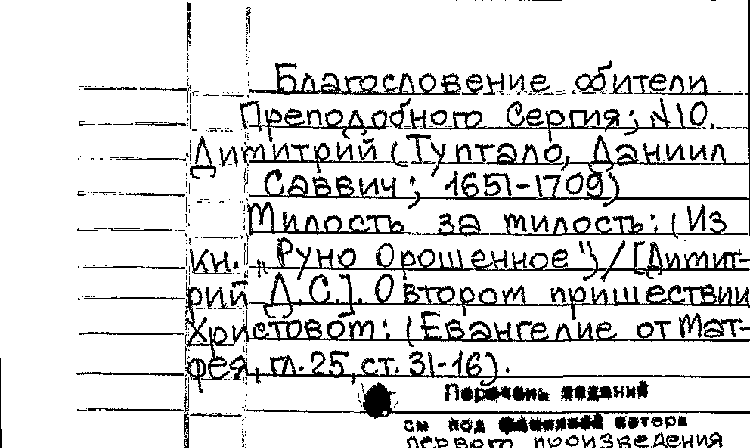 Благословение обители
Преподобного Сергия; №10.
Димитрий (Туптало, Даниил
Саввич; 1651-1709)
Милость за милость: (Из
кн. „Руно Орошенное")/[Димит-
рий Д.С.]. О втором пришествии
Христовом: (Евангелие от Мат-
фея, гл. 25, ст. 31-16).
Перечень изданий
см под фамилией автора
первого произведения